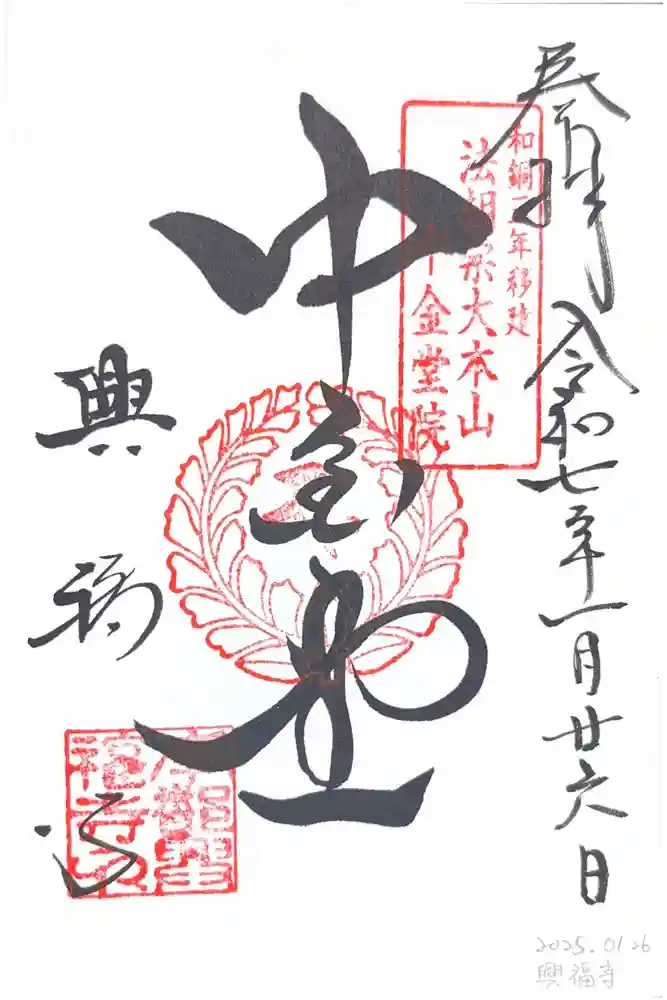 奉拝 令和七年一月廿六日
和銅三年移建
法相宗大本山
中金堂院
中金堂
興福寺
2025.01.26
興福寺